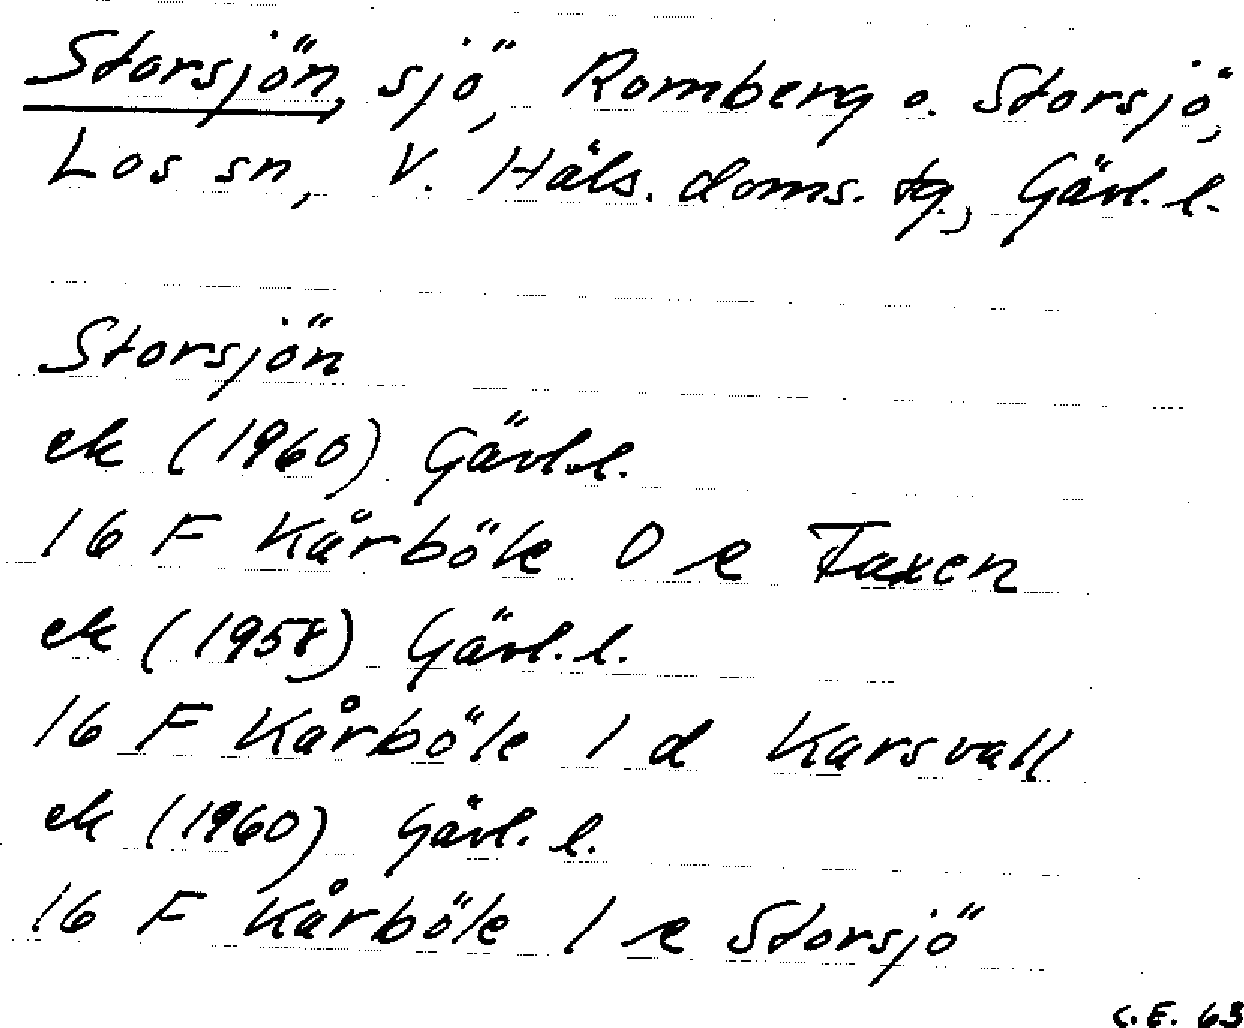 Storsjön, sjö, Romberg o. Storsjö,
Los sn, V. Häls. doms. tg., Gävl. l.
Storsjön
ek (1960) Gävl. l.
16 F Kårböle 0 e Faxen
ek (1958) Gävl. l.
16 F Kårböle 1 d Karsvall
ek (1960) Gävl. l.
16 F Kårböle 1 e Storsjö
C.E. 63